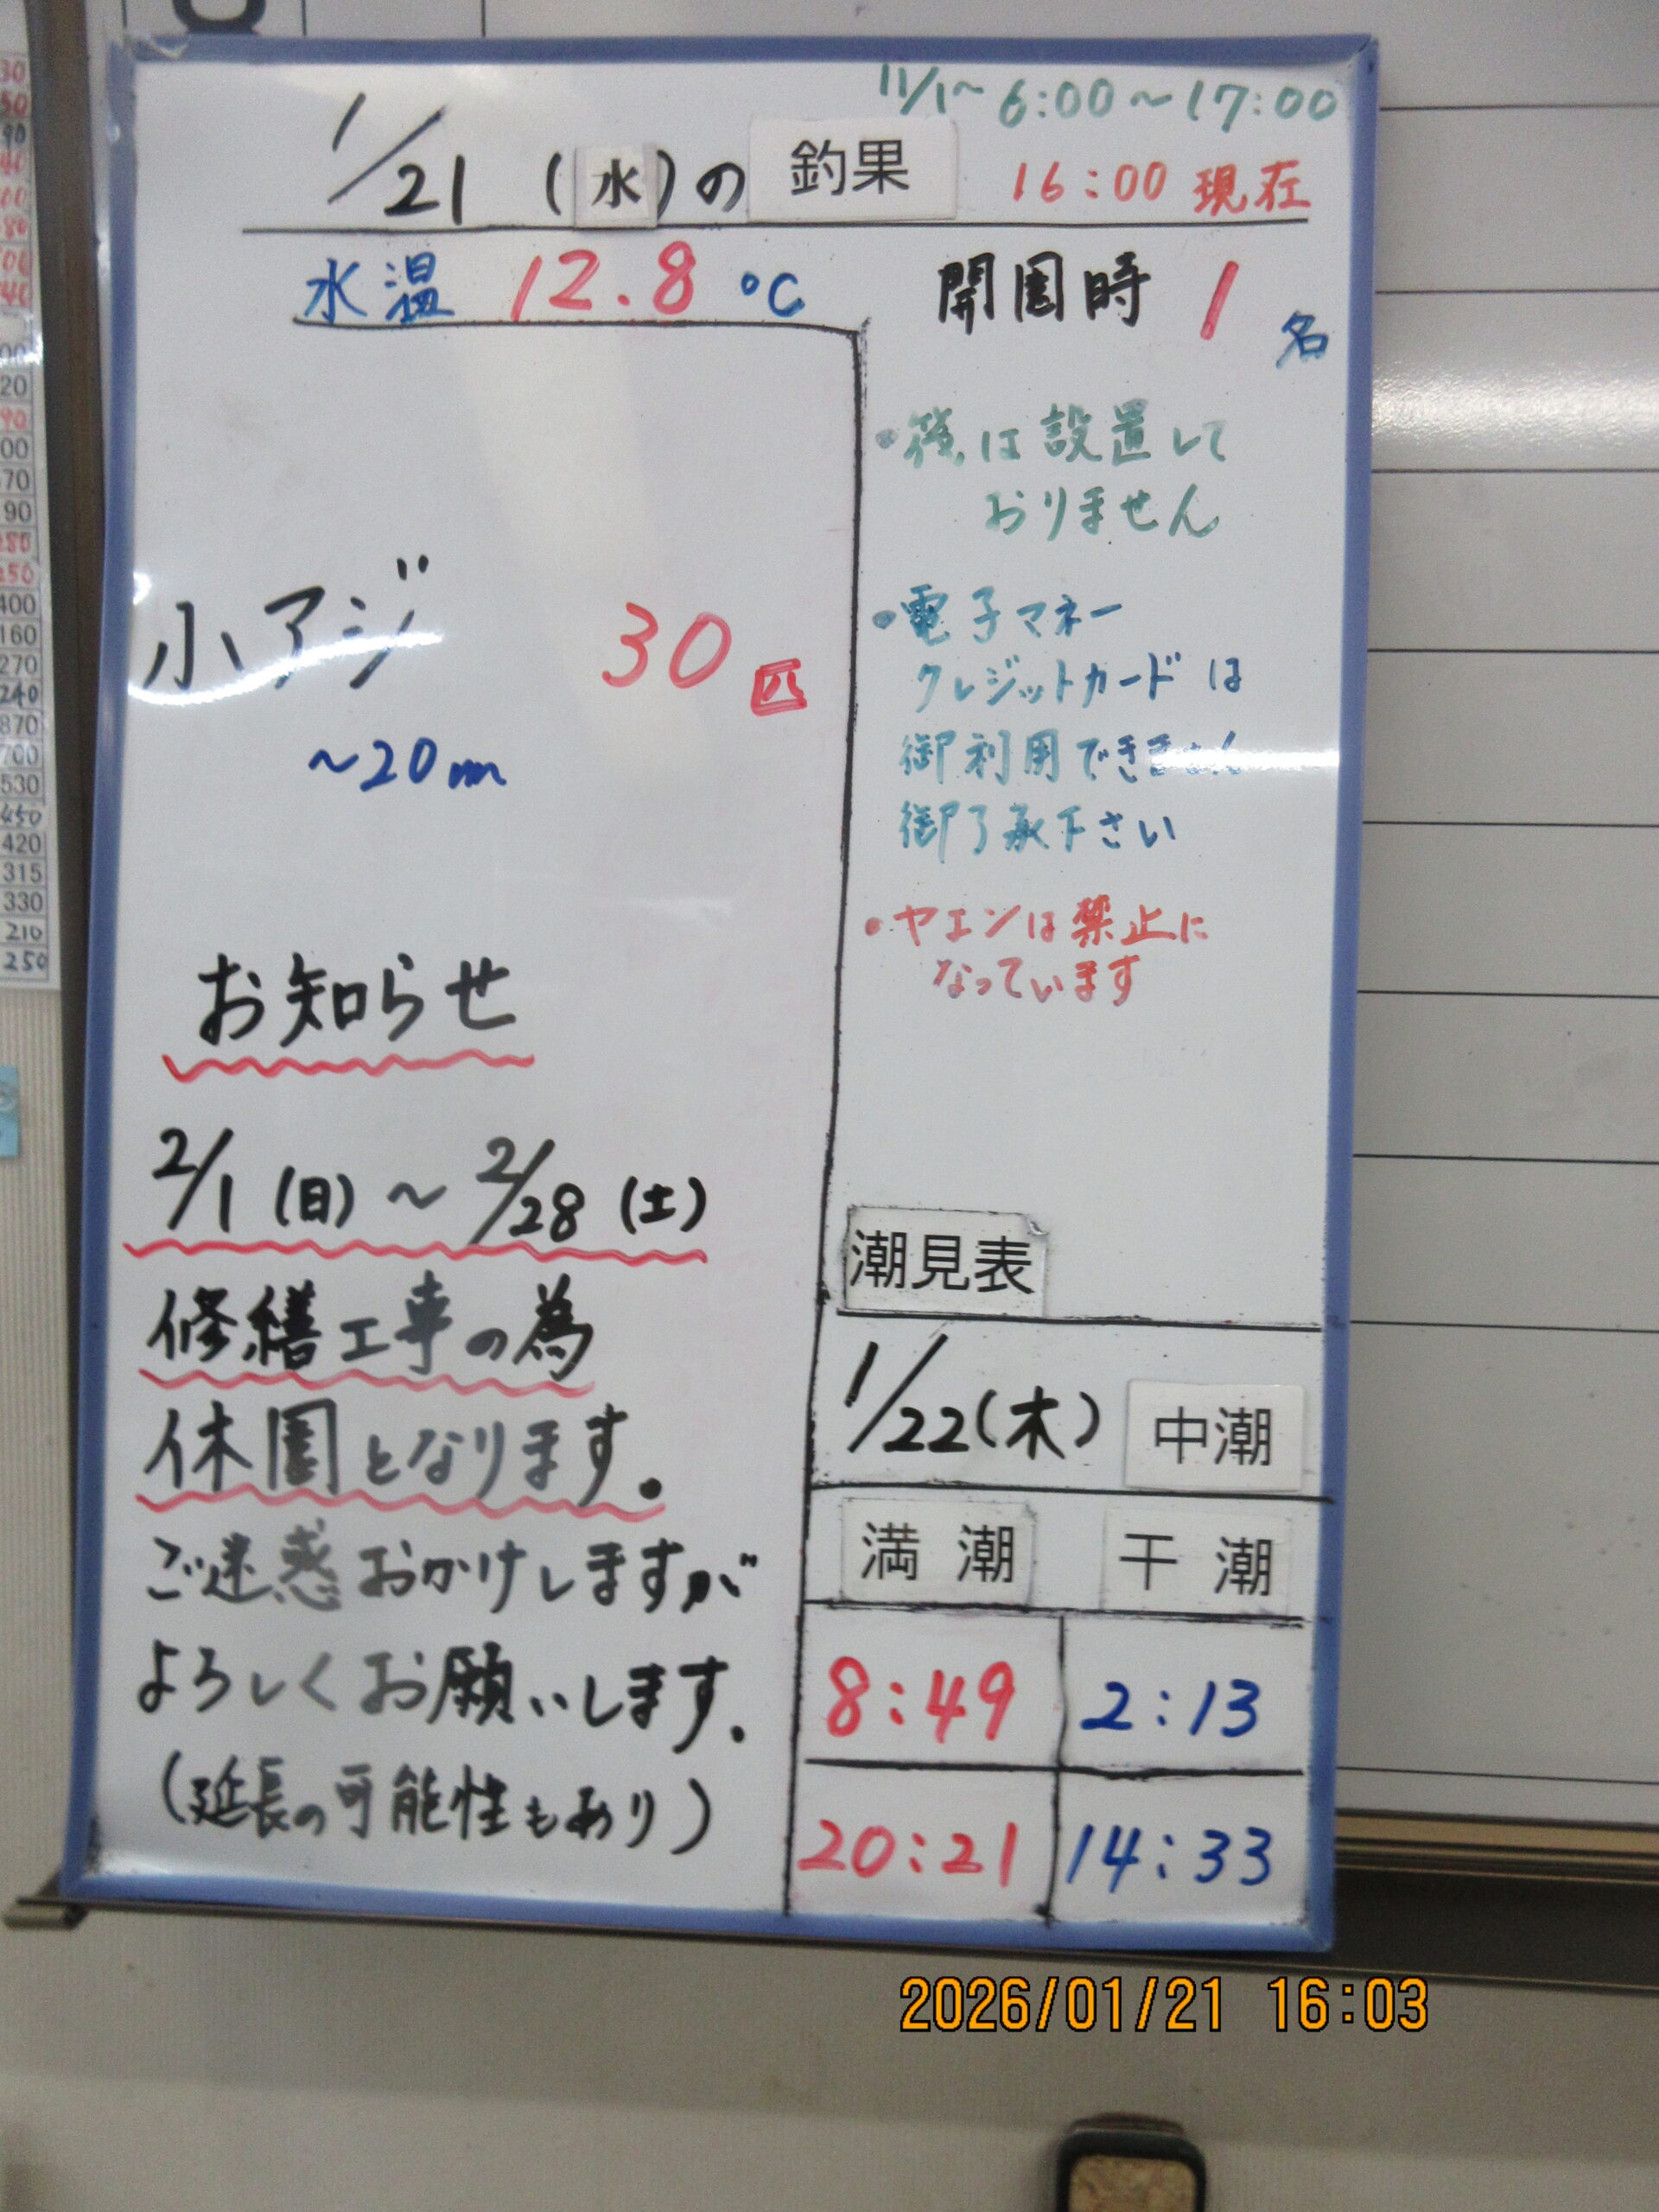 11/1～6:00～17:00
1/21 (水)の 釣果 16:00 現在
水温 12.8 ℃
開園時 1名
・筏は設置して
おりません
・電子マネー
クレジットカードは
御利用できません
御了承下さい
・ヤエンは禁止に
なっています
小アジ 30匹
～20cm
お知らせ
2/1 (日) ～ 2/28 (土)
修繕工事の為
休園となります。
ご迷惑おかけしますが
よろしくお願いします.
(延長の可能性もあり)
潮見表
1/22(木) 中潮
満潮 干潮
8:49 2:13
20:21 14:33
2026/01/21 16:03
400
160
270
240
870
700
530
450
420
315
330
210
250